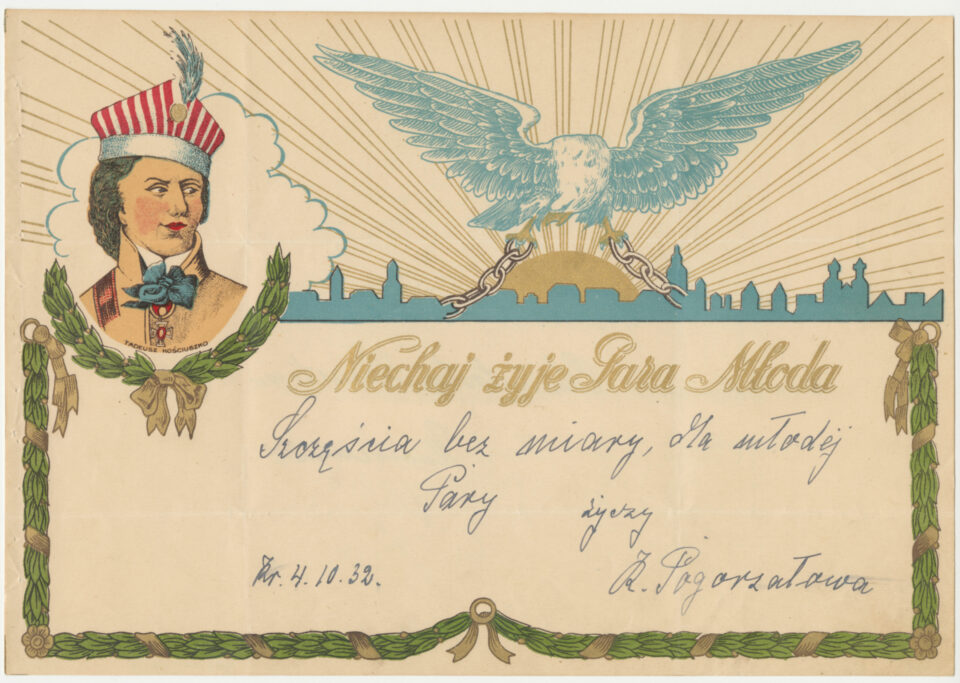 TADEUSZ KOŚCIUSZKO
Niechaj żyje Para Młoda
Szczęścia bez miary, dla młodéj
Pary życzy
Kr. 4.10.32. Z. Pogorzałowa